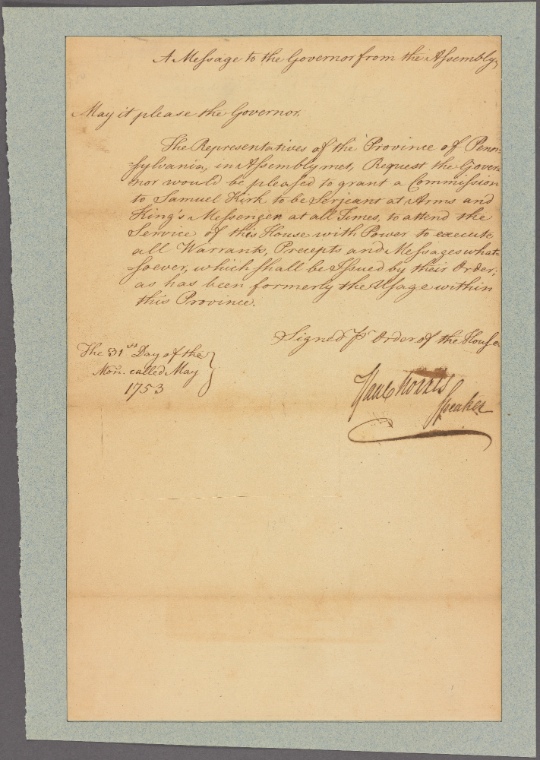 A Message to the Governor from the Assembly,
May it please the Governor.
The Representatives of the Province of Penn-
sylvania, in Assembly met, Request the Gover-
nor would be pleased to grant a Commission
to Samuel Kirk to be Serjeant at Arms and
King's Messenger at all Times, to attend the
Service of this House with Power to execute
all Warrants, Precepts and Messages what-
soever, which shall be Issued by their Order,
as has been formerly the Usage within
this Province.
Signed pr Order of the House
The 31st Day of the
Mon. called May
1753
Isaac Norris
Speaker